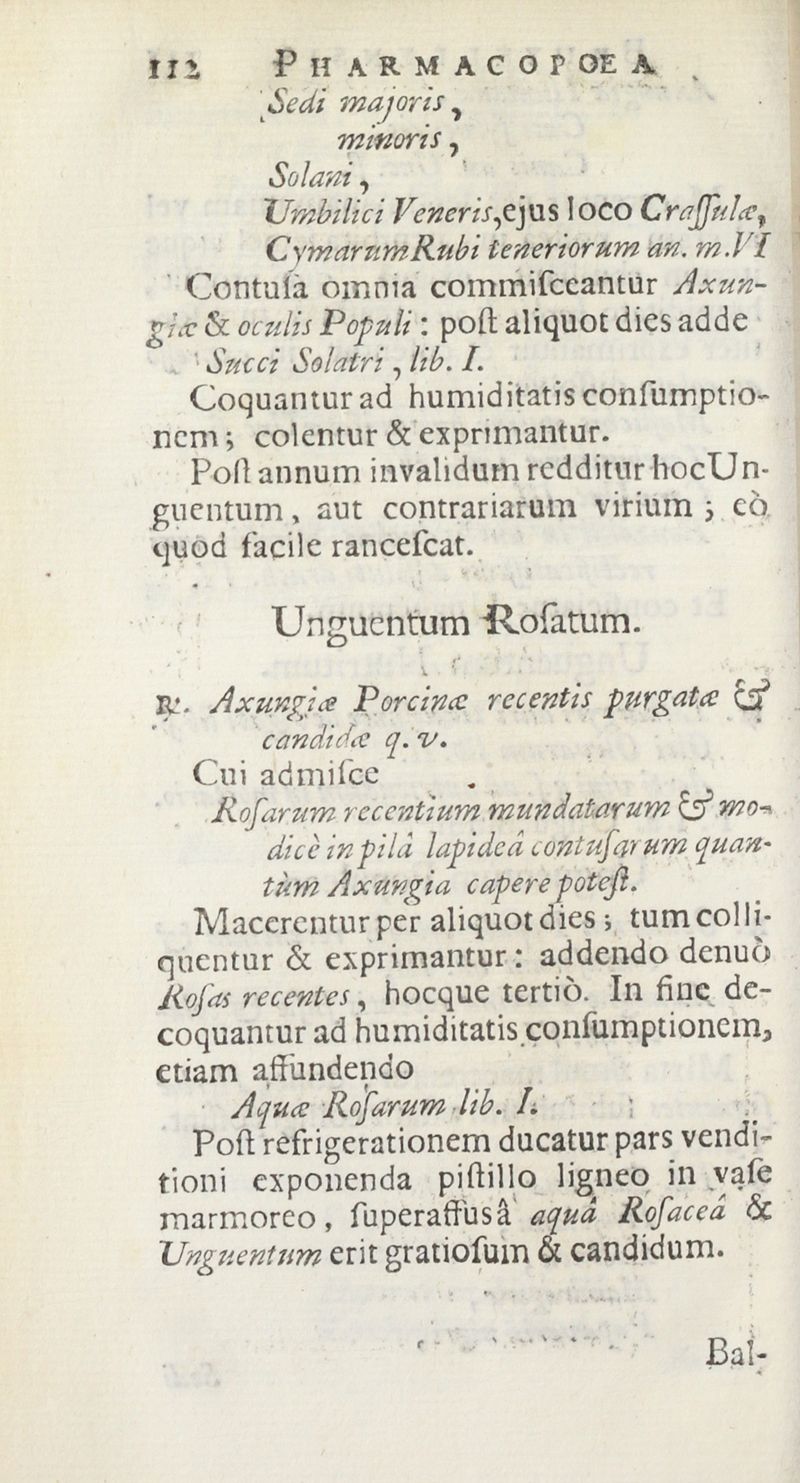 112 PHARMACOPOEA
Sedi majoris,
minoris,
Solani,
Umbilici Veneris,ejus loco Craſſulæ,
CymarumRubi teneriorum an. m.VI
Contuſa omnia commiſceantur Axun-
giæ & oculis Populi : poſt aliquot dies adde
Succi Solatri, lib. I.
Coquantur ad humiditatis conſumptio-
nem; colentur & exprimantur.
Poſt annum invalidum redditur hocUn-
guentum, aut contrariarum virium; eò
quod facile ranceſcat.
Unguentum Roſatum.
℞. Axungiæ Porcinæ recentis purgatæ &
candidæ q. v.
Cui admiſce
Roſarum recentium mundatarum & mo-
dicè in pilâ lapideâ contuſarum quan-
tùm Axungia capere poteſt.
Macerentur per aliquot dies; tum colli-
quentur & exprimantur: addendo denuò
Roſas recentes, hocque tertiò. In fine de-
coquantur ad humiditatis conſumptionem,
etiam affundendo
Aquæ Roſarum lib. I.
Poſt refrigerationem ducatur pars vendi-
tioni exponenda piſtillo ligneo in vaſe
marmoreo, ſuperaffusâ aquâ Roſaceâ &
Unguentum erit gratioſum & candidum.
Bal-